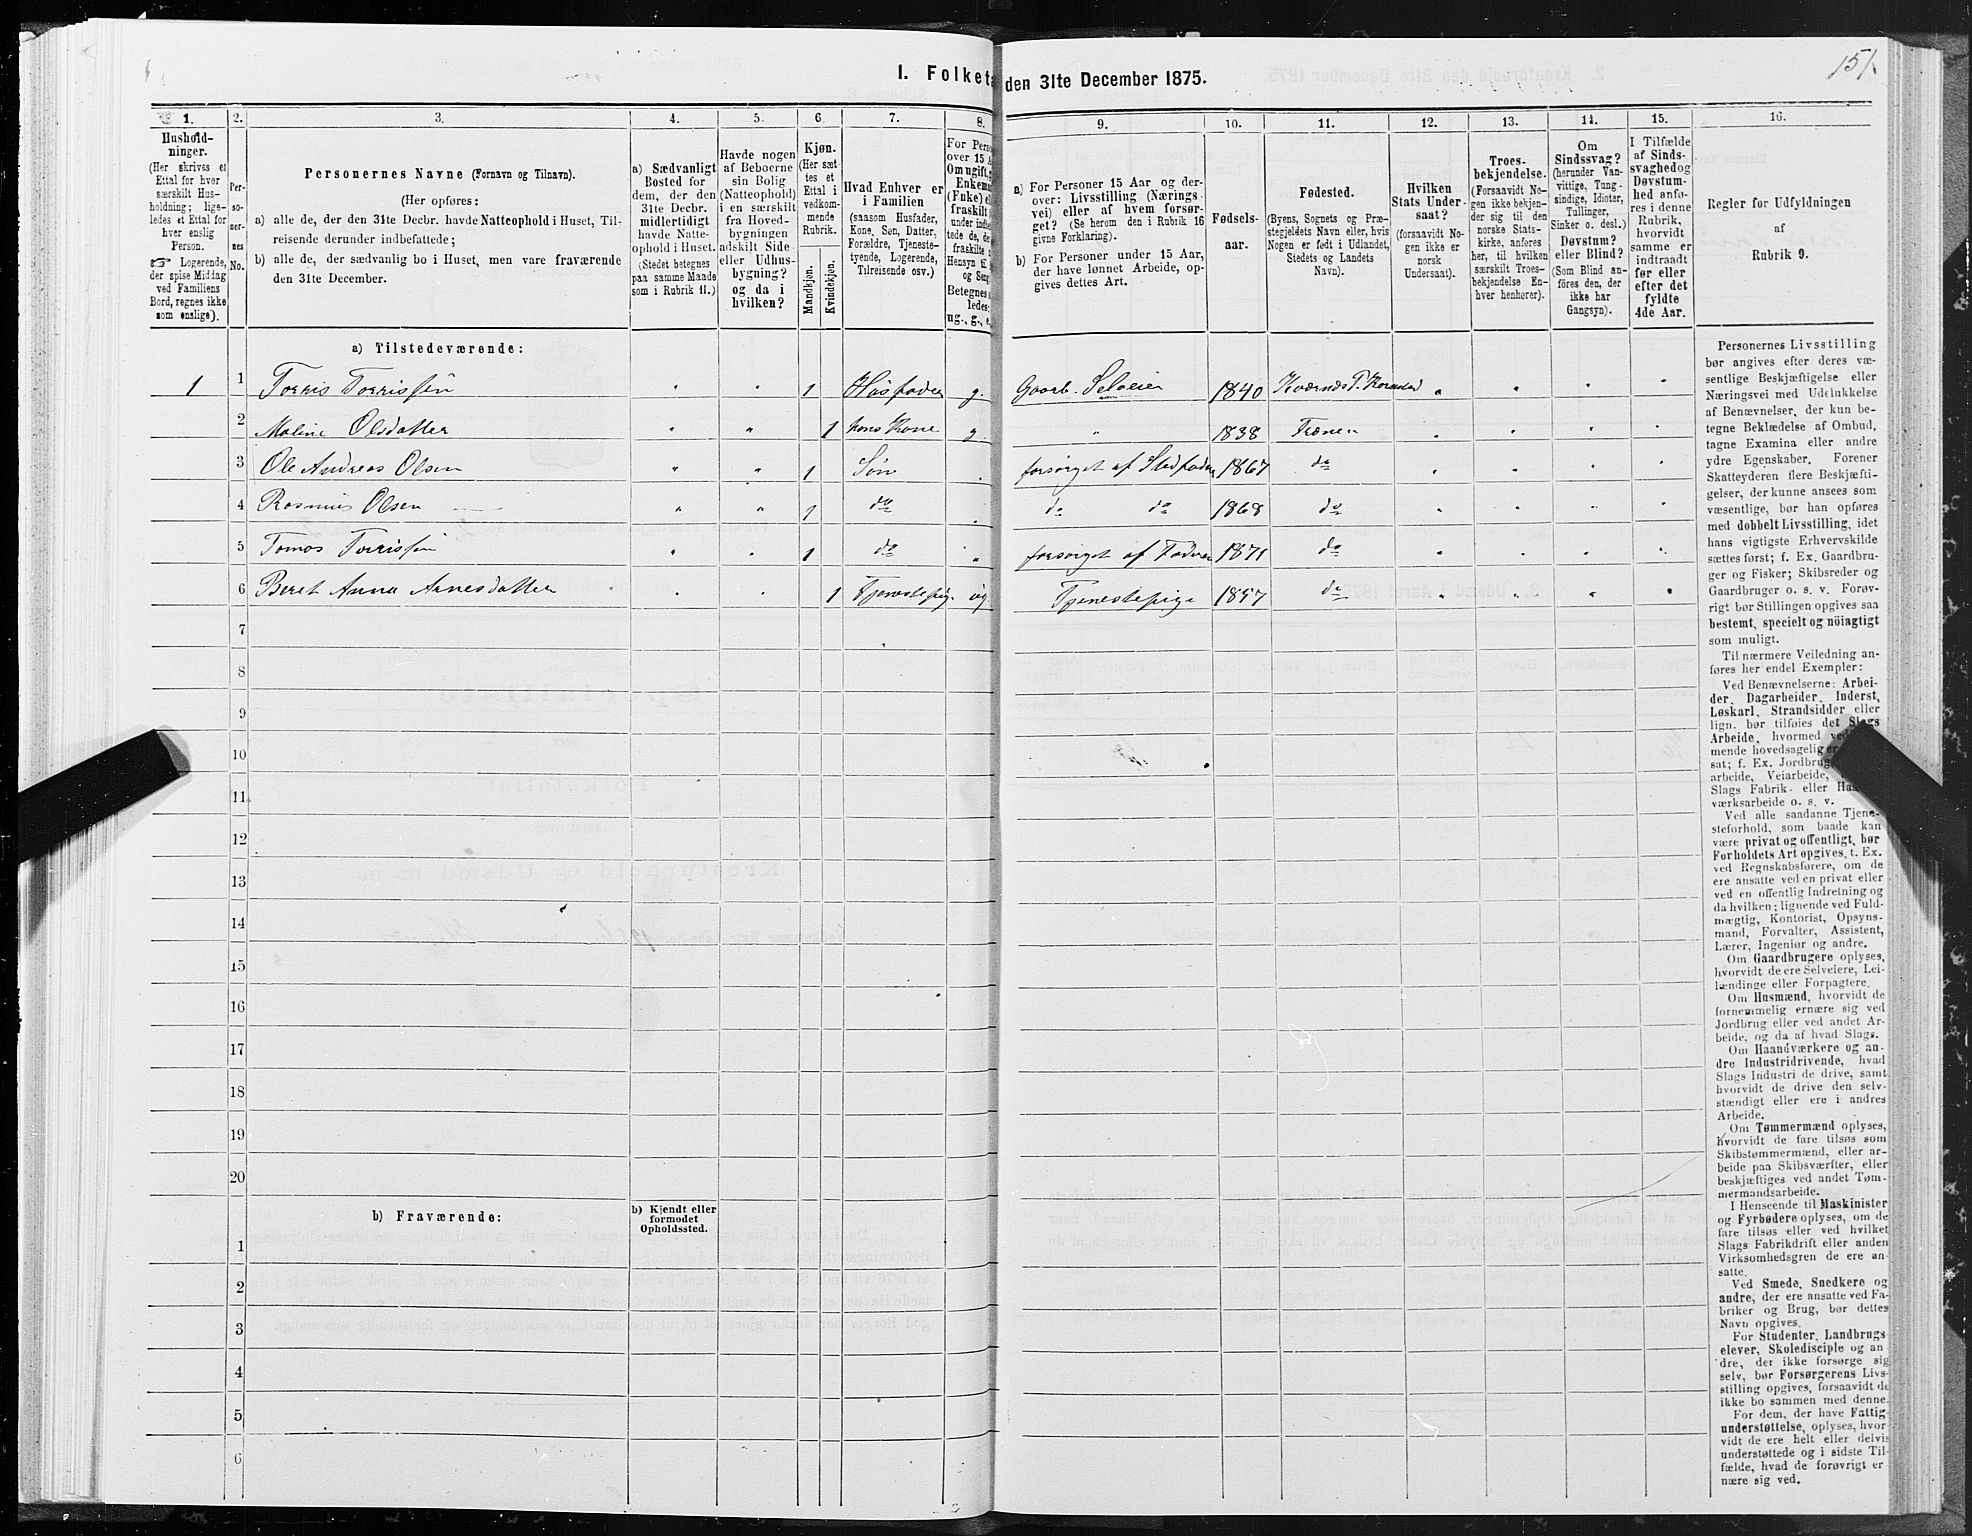 151.
I. Folketa
den 31te December 1875.
1.
2.
3.
4.
5.
6
7.
8.
9.
10.
11.
12.
13.
14.
15.
16.
Hushold-
ninger.
(Her skrives et
Ettal for hver
særskilt Hus-
holdning; lige-
ledes et Ettal for
hver enslig
Person.
☞ Logerende,
der spise Middag
ved Familiens
Bord, regnes ikke
som enslige).
Per-
so-
ner-
nes
No.
Personernes Navne (Fornavn og Tilnavn).
(Her opføres:
a) alle de, der den 31te Decbr. havde Natteophold i Huset, Til-
reisende derunder indbefattede;
b) alle de, der sædvanlig bo i Huset, men vare fraværende
den 31te December.
a) Sædvanligt
Bosted for
dem, der den
31te Decbr.
midlertidigt
havde Natte-
ophold i Huset.
(Stedet betegnes
paa samme Maade
som i Rubrik 11.)
Havde nogen
af Beboerne
sin Bolig
(Natteophold)
i en særskilt
fra Hoved-
bygningen
adskilt Side-
eller Udhus-
bygning?
og da i
hvilken?
Kjøn.
(Her sæt
tes et
Ettal i
vedkom-
mende
Rubrik.
Mandkjøn.
Kvindekjøn.
Hvad Enhver er
i Familien
(saasom Husfader,
Kone, Søn, Datter,
Forældre, Tjeneste-
tyende, Logerende,
Tilreisende osv.)
For Perso
over 15 A
Om ugift,
Enkem
(Fnke) el
fraskilt
under indbe
tede de, de
fraskilte
Hensyn til
og Seng
Betegnes
ledes:
ug., g., e.
a) For Personer 15 Aar og der-
over: Livsstilling (Nærings-
vei) eller af hvem forsør-
get? (Se herom den i Rubrik 16
givne Forklaring).
b) For Personer under 15 Aar,
der have lønnet Arbeide, op-
gives dettes Art.
Fødsels-
aar.
Fødested.
(Byens, Sognets og Præ-
stegjeldets Navn eller, hvis
Nogen er født i Udlandet,
Stedets og Landets
Navn).
Hvilken
Stats Under-
saat?
(forsaavidt No-
gen ikke er
norsk
Undersaat).
Troes-
bekjendelse.
(Forsaavidt No-
gen ikke bekjen-
der sig til den
norske Stats-
kirke, anføres
her, til hvilken
særskilt Troes-
bekjendelse En-
hver henhører).
Om
Sindssvag?
(herunder Van-
vittige, Tung-
sindige, Idioter,
Tullinger,
Sinker o. desl.)
Døvstum?
eller Blind?
(Som Blind an-
føres den, der
ikke har
Gangsyn).
I Tilfælde
af Sinds-
svaghed og
Døvstum-
hed anfø-
res i denne
Rubrik,
hvorvidt
samme er
indtraadt
før eller
efter det
fyldte
4de Aar.
Regler for Udfyldningen
af
Rubrik 9.
a) Tilstedeværende:
1 1 Torris Torrissen " " 1 Husfader g. Gaarb. Seleier 1840
2 Maline Olsdatter " " 1 hans Kone g " 1838 Trænen "
3 Ole Andreas Olsen " " 1 Søn forsørget af Stedfader 1867 do "
4 Rasmus Olsen " " 1 do do do 1868 do "
5 Tomas Torrissen " " 1 do " forsørget af Faderen 1871 do "
6 Beret Anna Arnesdatter " " 1 Tjenestepige ug Tjenestepige 1857 do "
7
8
9
10
11
12
13
14
15
16
17
18
19
20
b) Fraværende:
b) Kjendt eller
formodet
Opholdssted.
1
2
3
4
5
6
Personernes Livsstilling
bør angives efter deres væ-
sentlige Beskjæftigelse eller
Næringsvei med Udelukkelse
af Benævnelser, der kun be-
tegne Beklædelse af Ombud,
tagne Examina eller andre
ydre Egenskaber. Forener
Skatteyderen flere Beskjæfti-
gelser, der kunne ansees som
væsentlige, bør han opføres
med dobbelt Livsstilling, idet
hans vigtigste Erhvervskilde
sættes først; f. Ex. Gaardbru-
ger og Fisker; Skibsreder og
Gaardbruger o. s. v. Forøv-
rigt bør Stillingen opgives saa
bestemt, specielt og nöiagtigt
som muligt.
Til nærmere Veiledning an-
føres her endel Exempler:
Ved Benævnelserne: Arbei-
der, Dagarbeider, Inderst,
Løskarl, Strandsidder eller
lign. bør tilføies det Slags
Arbeide, hvormed ved
mende hovedsagelig er
sat; f. Ex. Jordbrug
arbeide, Veiarbeide,
Slags Fabrik- eller Haa
værksarbeide o. s. v.
Ved alle saadanne Tjene-
steforhold, som baade kan
være privat og offentligt, bør
Forholdets Art opgives, t. Ex.
ved Regnskabsførere, om de
ere ansatte ved en privat eller
ved en offentlig Indretning og
da hvilken; lignende ved Fuld-
mægtig, Kontorist, Opsyns-
mand, Forvalter, Assistent,
Lærer, Ingeniør og andre.
Om Gaardbrugere oplyses,
hvorvidt de ere Selveiere, Lei-
lændinge eller Forpagtere.
Om Husmænd, hvorvidt de
fornemmelig ernære sig ved
Jordbrug eller ved andet Ar-
beide, og da af hvad Slags.
Om Haandværkere og an-
dre Industridrivende, hvad
Slags Industri de drive, samt
hvorvidt de drive den selv-
stændigt eller ere i andres
Arbeide.
Om Tømmermænd oplyses,
hvorvidt de fare tilsøs som
Skibstømmermænd, eller ar-
beide paa Skibsværfter, eller
beskjæftiges ved andet Tøm-
mermandsarbeide.
I Henseende til Maskinister
og Fyrbødere oplyses, om de
fare tilsøs eller ved hvilket
Slags Fabrikdrift eller anden
Virksomhedsgren de ere an-
satte.
Ved Smede, Snedkere og
andre, der ere ansatte ved Fa-
briker og Brug, bør dettes
Navn opgives.
For Studenter, Landbrugs
elever, Skoledisciple og an-
dre, der ikke forsørge sig
selv, bør Forsørgerens Livs-
stilling opgives, forsaavidt de
ikke bo sammen med denne.
For dem, der have Fattig-
understøttelse, oplyses, hvor-
vidt de ere helt eller delvis
understøttede og i sidste Til-
fælde, hvad de forøvrigt er
nære sig ved.